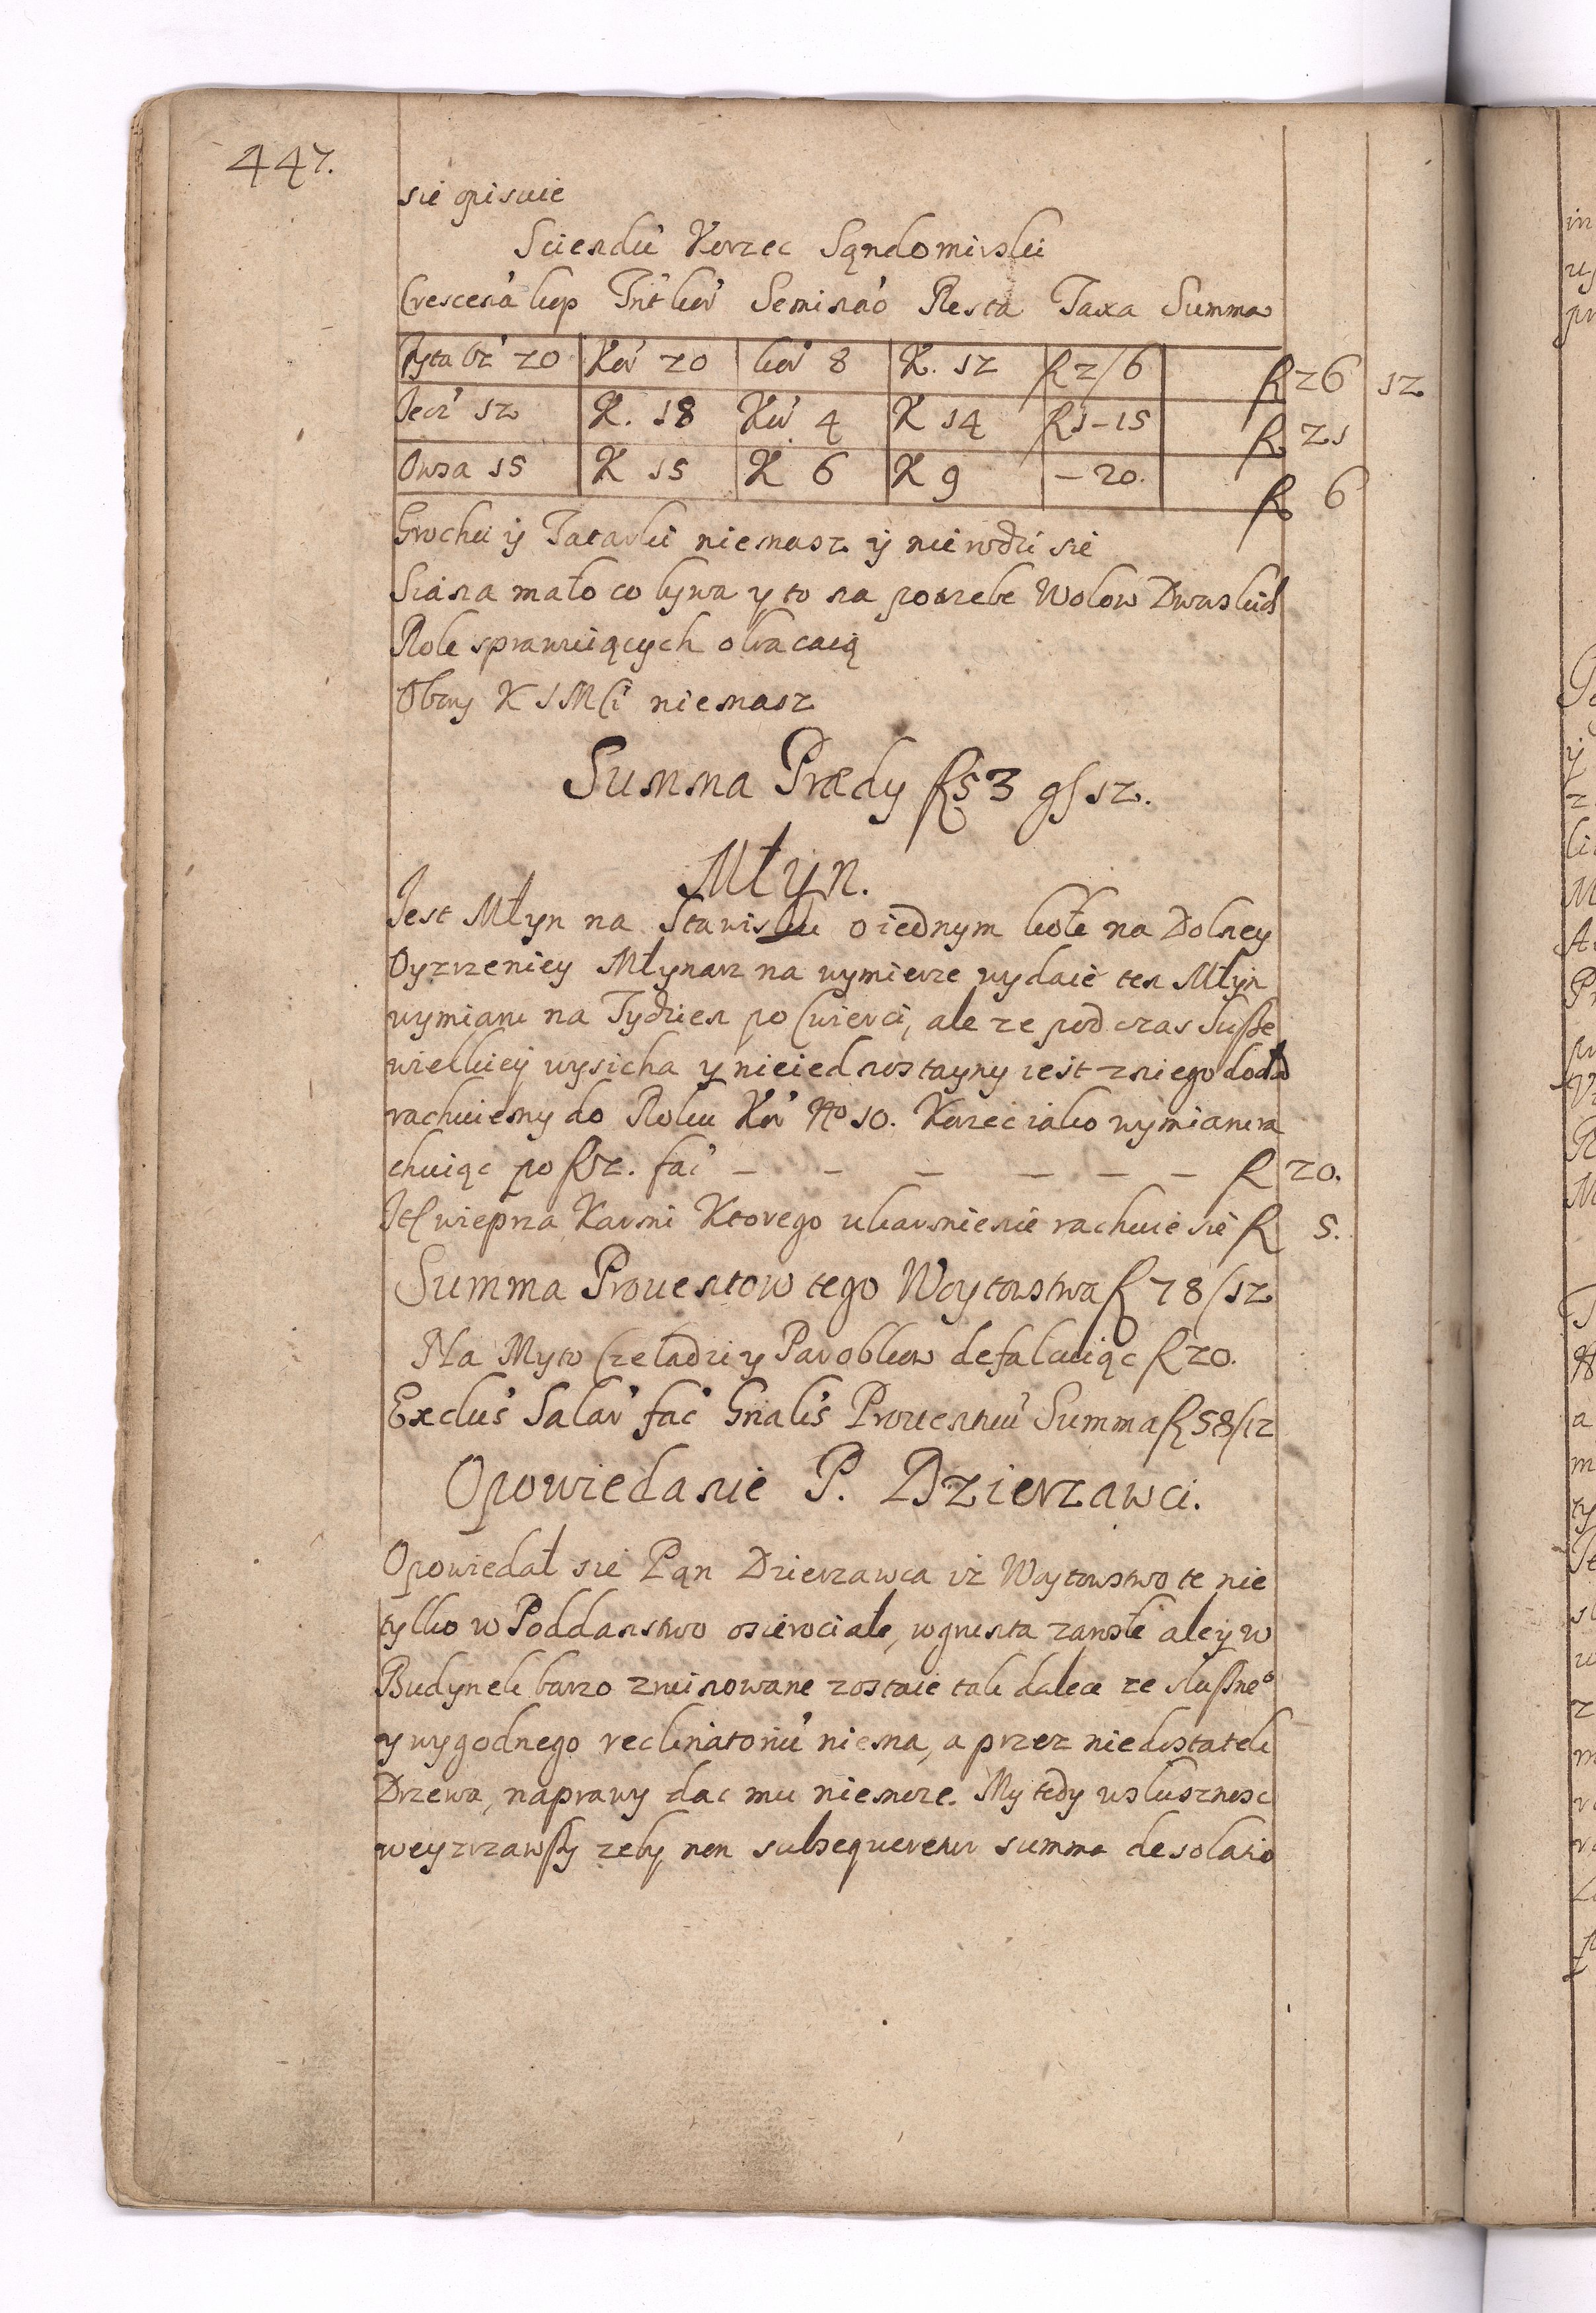 447.
się opisuie
Sciendũ Korzec Sandomirski
Crescenã kop Trit̃ kor̃ Seminãō Resta Taxa Summa
Żyta Oz̃ 20 Kor̃ 20 kor̃ 8 K. 12 fl 2/6 fl 26 12
Jecz̃ 12 K. 18 Kor̃ 4 K 14 fl 1-15 fl 21
Owsa 15 K 15 K 6 K 9 -20. fl 6
Grochu ÿ Tatarki niemasz ÿ nie rodzi się
Siana mało co bywa y to na potrzebe Wołow Dworskich
Role sprawuiących obracaią
Obory K J M Ci niemasz
Summa Prædÿ fl 53 gſ 12.
Młyn.
Jest Młyn na Stawisku o iednym kole na Dolney
Oyzrzeniey Młynarz na wymierze wydaie ten Młyn
wymiaru na Tydzien po Cwierci, ale ze pod czas Suſze
wielkieÿ wysicha y nieiednostayny iest z niego dochod
rachuiemy do Roku Kor̃ No 10. Korzec iako wymiaru ra
chuiąc po fl 2. fac̃ - - - - - - fl 20.
Jtſ wieprza Karmi Ktorego ukarmienie rachuie się fl 5.
Summa Prouentow tego Woytowstwa fl 78/12
Na Myto Czeladzi y Parobkow defalcuiąc fl 20.
Exclus̃ Salar̃ fac̃ Gñalis Prouentuũ Summa fl 58/12
Opowiedanie P. Dzierzawci.
Opowiedał się Pan Dzierzawca iż Woytowstwo te nie
tylko w Poddanstwo osierociałe, w grunta zawsłe ale ÿ w
Budynek barzo zruinowane zostaie tak dalece ze sluſneo
y wygodnego reclinatoriũ niema, a przez niedostatek
Drzewa, naprawy dac mu niemoze. My tedy w słusznosc
weyzrzawſzy zeby non subsequeretur summa desolatio